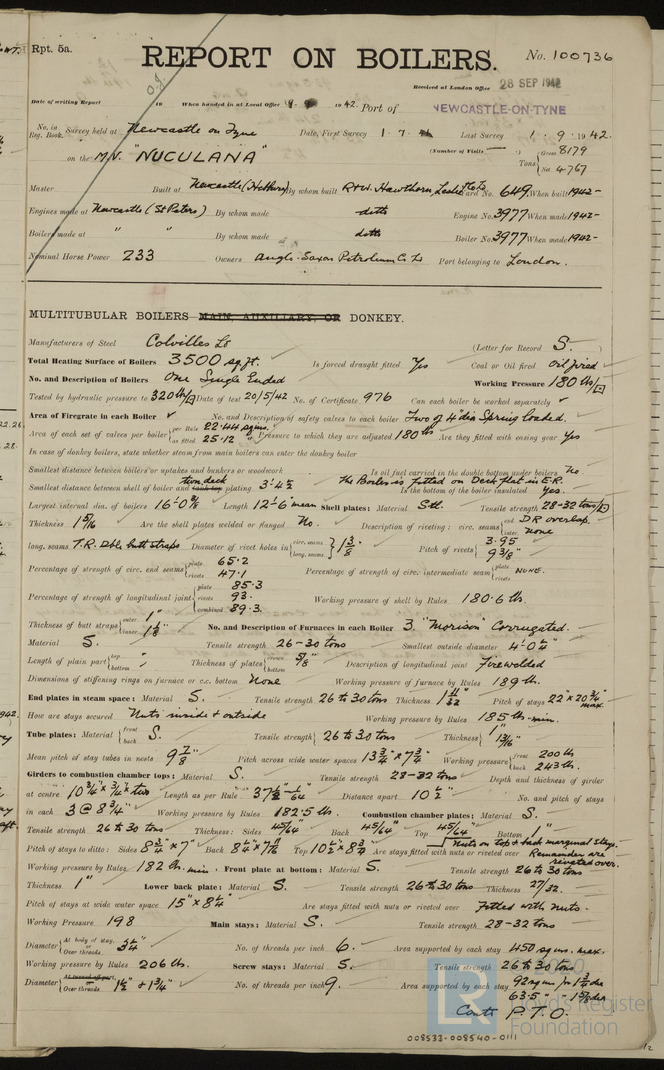 Rpt. 5a.
REPORT ON BOILERS.
No. 100736
Received at London Office 28 SEP 1942
Date of writing Report 19 When handed in at Local Office 1942. Port of NEWCASTLE-ON-TYNE
No. in Reg. Book. Survey held at Newcastle on Tyne Date, First Survey 1. 7. Last Survey 1. 9. 1942.
on the M.V. "NUCULANA" (Number of Visits ) Tons { Gross 8179 Net 4767
Master Built at Newcastle (Hebburn) By whom built R & W. Hawthorn, Leslie & Co Ltd Yard No. 649. When built 1942-
Engines made at Newcastle (St Peters) By whom made ditto Engine No. 3977 When made 1942-
Boilers made at " " By whom made ditto Boiler No. 3977 When made 1942-
Nominal Horse Power 233 Owners Anglo-Saxon Petroleum Co Ld Port belonging to London.
MULTITUBULAR BOILERS MAIN, AUXILIARY, OR DONKEY.
Manufacturers of Steel Colvilles Ld (Letter for Record S. )
Total Heating Surface of Boilers 3500 sq.ft. Is forced draught fitted Yes Coal or Oil fired Oil fired
No. and Description of Boilers One Single Ended Working Pressure 180 lbs/□"
Tested by hydraulic pressure to 320 lbs/□" Date of test 20/5/42 No. of Certificate 976 Can each boiler be worked separately ✓
Area of Firegrate in each Boiler ✓ No. and Description of safety valves to each boiler Two of 4" dia Spring loaded.
Area of each set of valves per boiler { per Rule 22.44 sq ins. as fitted 25.12 " Pressure to which they are adjusted 180 lbs Are they fitted with easing gear Yes
In case of donkey boilers, state whether steam from main boilers can enter the donkey boiler
Smallest distance between boilers or uptakes and bunkers or woodwork Is oil fuel carried in the double bottom under boilers No.
Smallest distance between shell of boiler and tank top plating 3'-4½" The Boiler is fitted on Deck flat in E.R. Is the bottom of the boiler insulated Yes.
Largest internal dia. of boilers 16'-0⅝" Length 12'-6" mean Shell plates: Material Stl. Tensile strength 28-32 tons/□"
Thickness 1 5/16 Are the shell plates welded or flanged No. Description of riveting: circ. seams { end DR overlap. inter. none
long. seams T.R. Dble butt straps Diameter of rivet holes in { circ. seams long. seams } 1⅜" Pitch of rivets { 3.95 9⅜"
Percentage of strength of circ. end seams { plate 65.2 rivets 47.1 Percentage of strength of circ. intermediate seam { plate rivets NONE.
Percentage of strength of longitudinal joint { plate 85.3 rivets 93. combined 89.3. Working pressure of shell by Rules 180.6 lbs.
Thickness of butt straps { outer 1" inner 1⅛" No. and Description of Furnaces in each Boiler 3. "Morison" Corrugated.
Material S. Tensile strength 26-30 tons Smallest outside diameter 4'-0¼"
Length of plain part { top bottom Thickness of plates { crown bottom 5/8" Description of longitudinal joint Firewelded
Dimensions of stiffening rings on furnace or c.c. bottom None Working pressure of furnace by Rules 189 lbs.
End plates in steam space: Material S. Tensile strength 26 to 30 tons Thickness 1 11/32 Pitch of stays 22" x 20¾" max.
How are stays secured Nuts inside & outside Working pressure by Rules 185 lbs. min.
Tube plates: Material { front back S. Tensile strength { 26 to 30 tons Thickness { 1" 13/16"
Mean pitch of stay tubes in nests 9⅞" Pitch across wide water spaces 13¾" x 7¾" Working pressure { front 200 lbs back 243 lbs.
Girders to combustion chamber tops: Material S. Tensile strength 28-32 tons Depth and thickness of girder
at centre 10¾" x ¾" two Length as per Rule Distance apart 10½" No. and pitch of stays
in each 3 @ 8¾" Working pressure by Rules 182.5 lbs. Combustion chamber plates: Material S.
Tensile strength 26 to 30 tons Thickness: Sides 45/64" Back 45/64" Top 45/64" Bottom 1"
Pitch of stays to ditto: Sides 8¾" x 7" Back 8¼" x 7⅞" Top 10½" x 8¾" Are stays fitted with nuts or riveted over Nuts on top & back marginal stays. Remainder are riveted over.
Working pressure by Rules 182 lbs. min. Front plate at bottom: Material S. Tensile strength 26 to 30 tons
Thickness 1" Lower back plate: Material S. Tensile strength 26 to 30 tons Thickness 27/32.
Pitch of stays at wide water space 15" x 8¼" Are stays fitted with nuts or riveted over Fitted with nuts.
Working Pressure 198 Main stays: Material S. Tensile strength 28-32 tons
Diameter { At body of stay, or Over threads. 3¼" No. of threads per inch 6. Area supported by each stay 450 sq ins. max.
Working pressure by Rules 206 lbs. Screw stays: Material S. Tensile strength 26 to 30 tons
Diameter { At turned off part, or Over threads. 1½" & 1¾" No. of threads per inch 9. Area supported by each stay 92 sq ins for 1¾ dia
63.5 " " 1⅝ dia
Contd P.T.O.
LR
Lloyd's Register
Foundation
008533-008540-0111